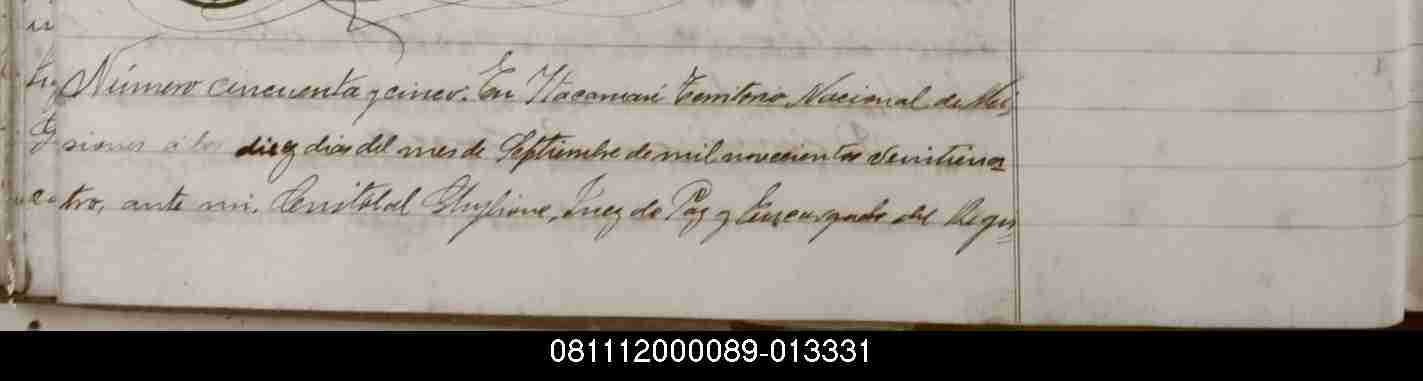 Número cincuenta y cinco. En Itacaruaré Territorio Nacional de Mi-
siones á los diez dias del mes de Septiembre de mil novecientos veinticua-
tro, ante mi, Juez de Paz y Encargado del Regis-
081112000089-013331